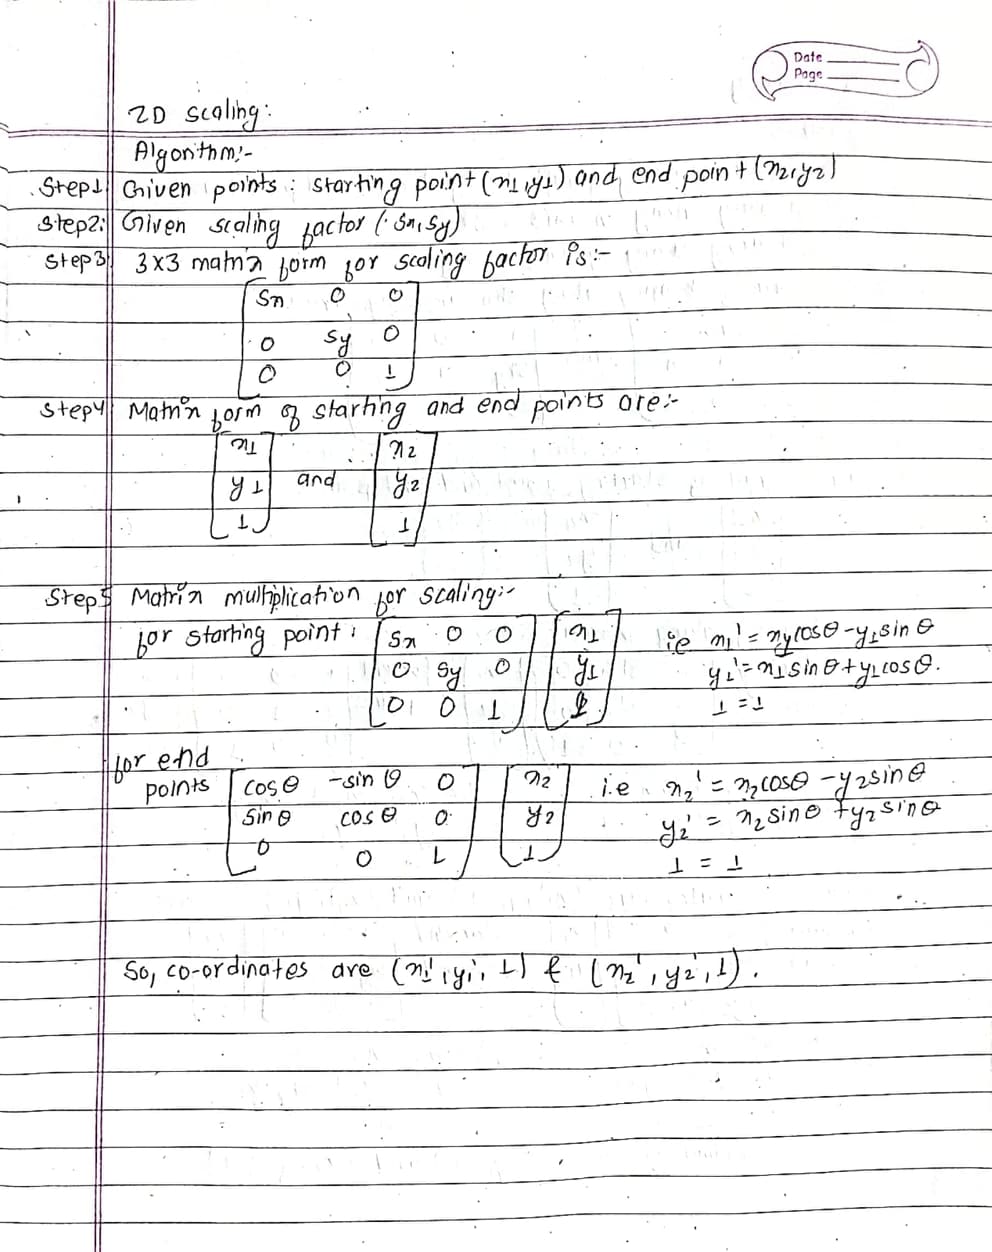 Date
Page
2D scaling:
Algorithm:-
Step1 Given points: starting point (x1, y1) and end point (x2, y2)
Step2: Given scaling factor (Sx, Sy)
Step3 3x3 matrix form for scaling factor is:-
[Sx 0 0
0 Sy 0
0 0 1]
Step4 Matrix form of starting and end points are:-
[x1 [x2
y1] and y2]
1 1
Step5 Matrix multiplication for scaling:-
for starting point: [Sx 0 0] [x1] i.e x1' = x1cosθ - y1sinθ
[0 Sy 0] [y1] y1' = x1sinθ + y1cosθ.
[0 0 1] [1] 1 = 1
for end
points [cosθ -sinθ 0] [x2] i.e x2' = x2cosθ - y2sinθ
[sinθ cosθ 0] [y2] y2' = x2sinθ + y2sinθ
[0 0 1] [1] 1 = 1
So, co-ordinates are (x1', y1', 1) & (x2', y2', 1).